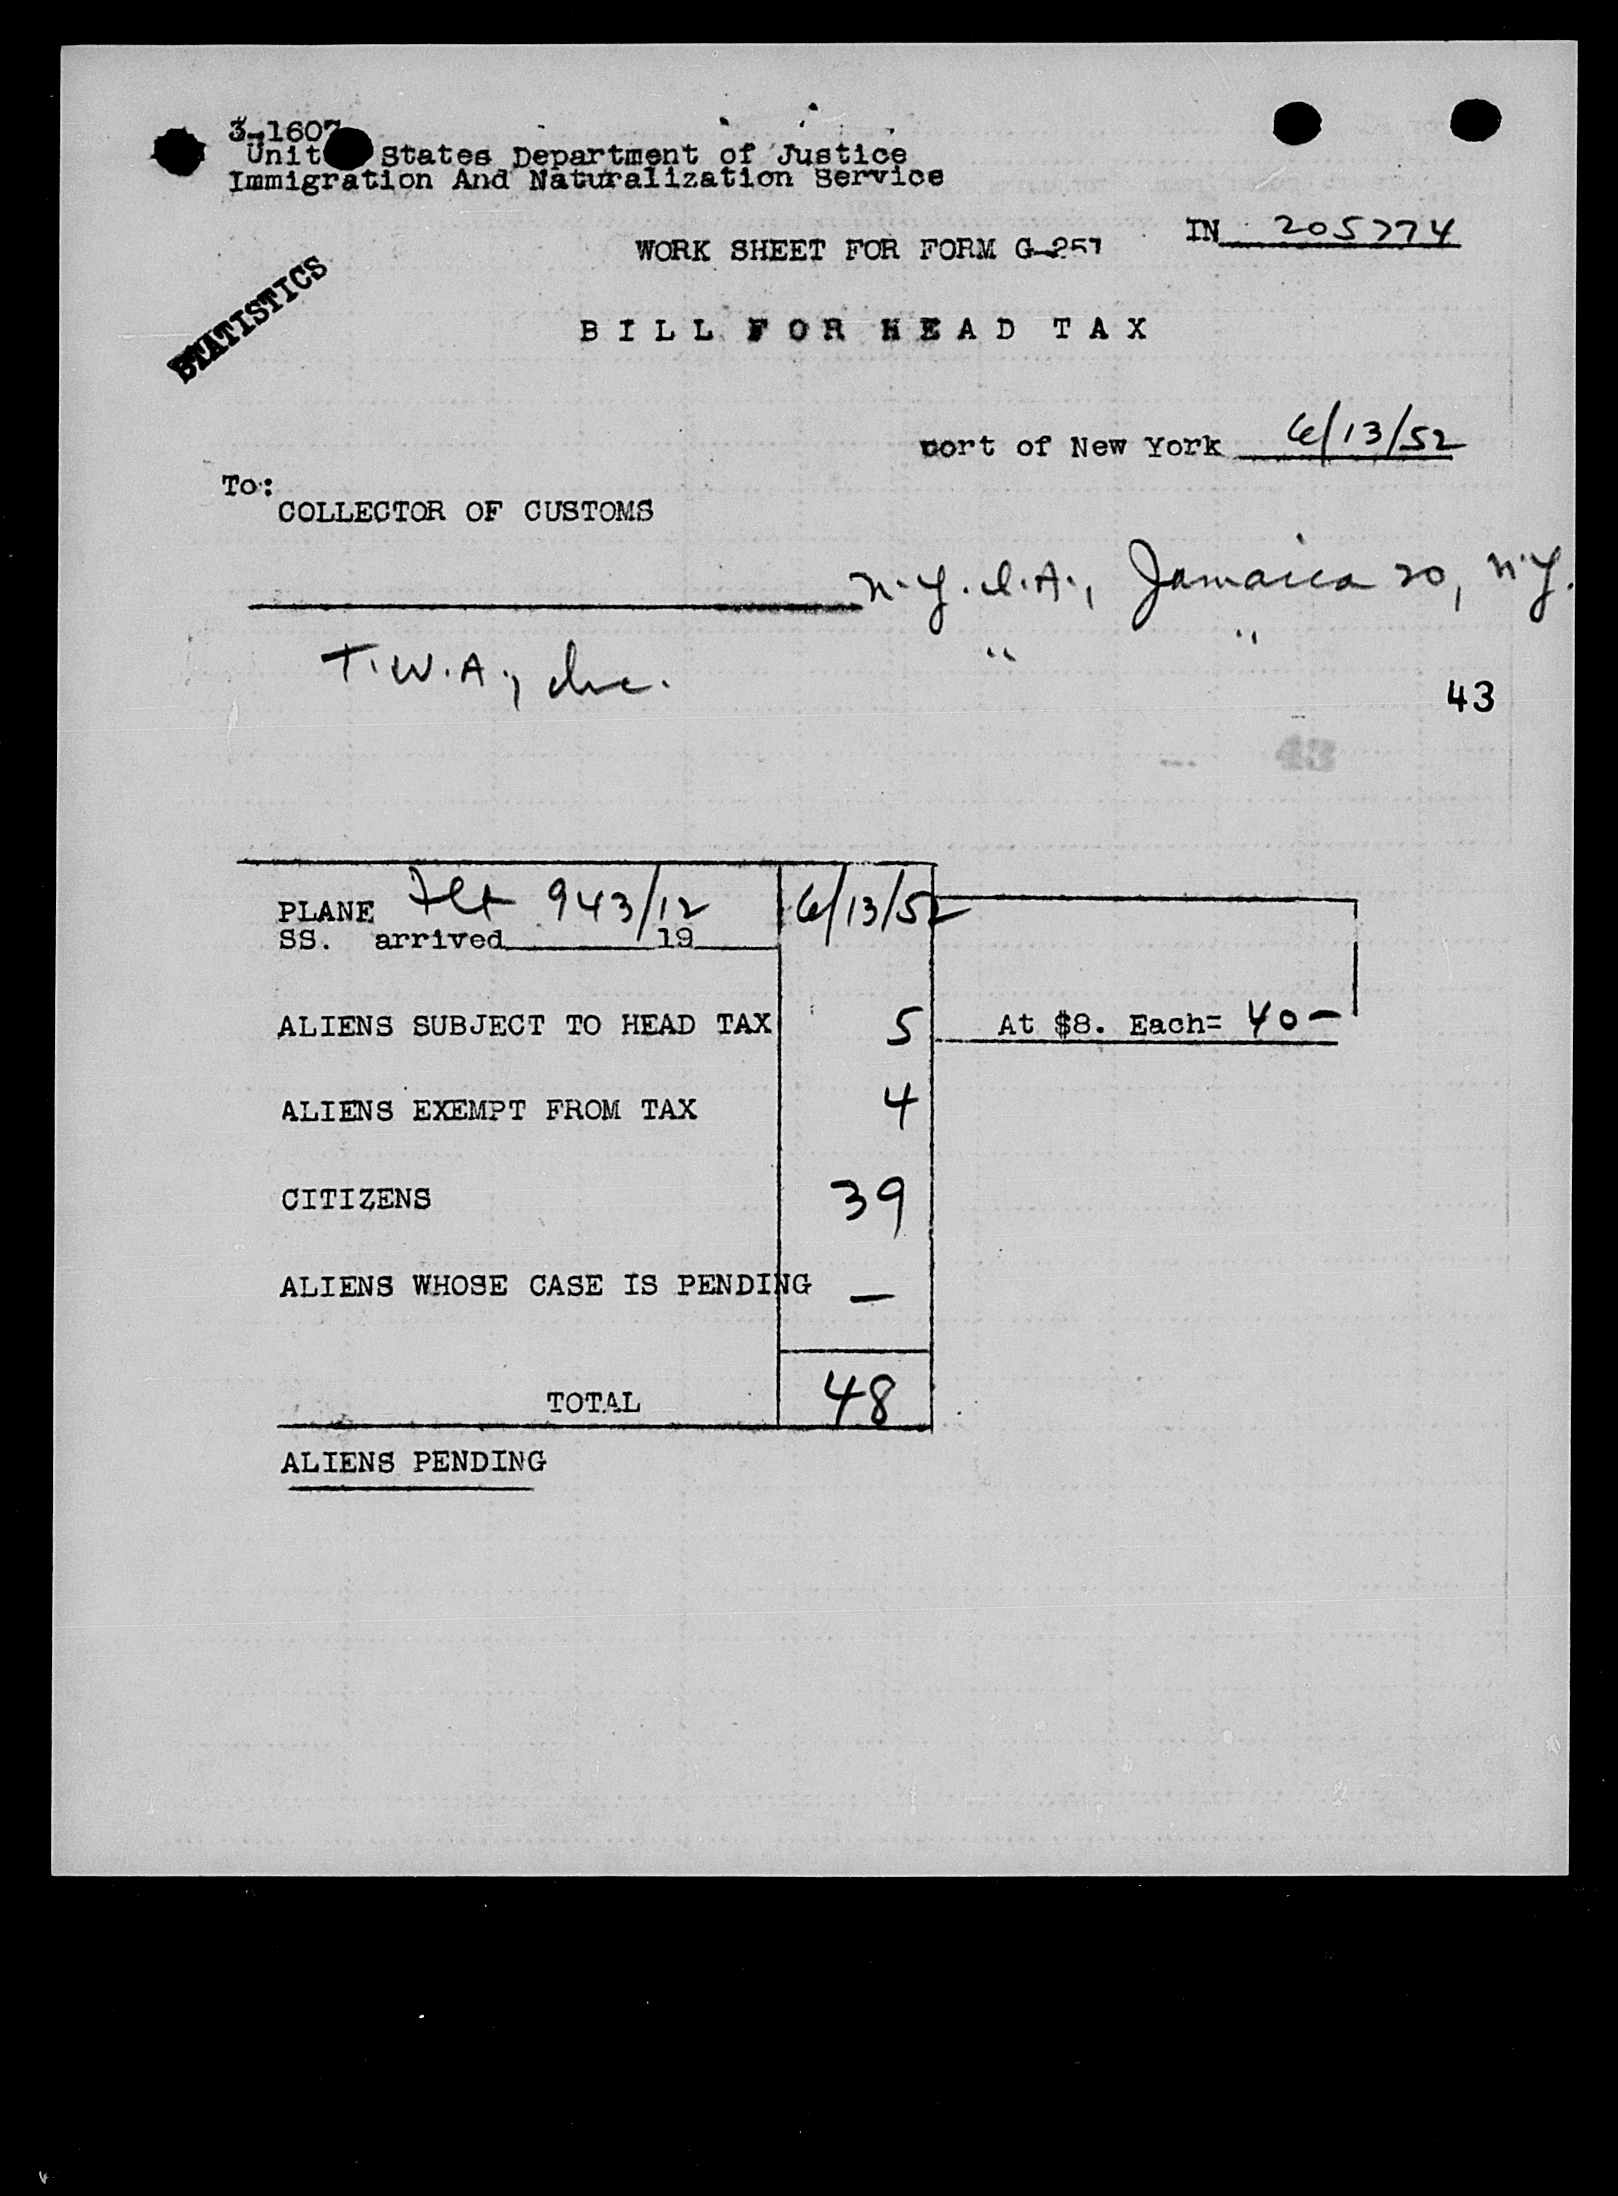 3-1607
United States Department of Justice
Immigration And Naturalization Service
IN 205774
WORK SHEET FOR FORM G-257
STATISTICS
BILL FOR HEAD TAX
port of New York 6/13/52
To:
COLLECTOR OF CUSTOMS
N.Y.I.A., Jamaica 20, N.Y.
T.W.A., Inc. " "
43
43
PLANE Flt 943/12 6/13/52
SS. arrived 19
ALIENS SUBJECT TO HEAD TAX 5 At $8. Each= 40-
ALIENS EXEMPT FROM TAX 4
CITIZENS 39
ALIENS WHOSE CASE IS PENDING —
TOTAL 48
ALIENS PENDING